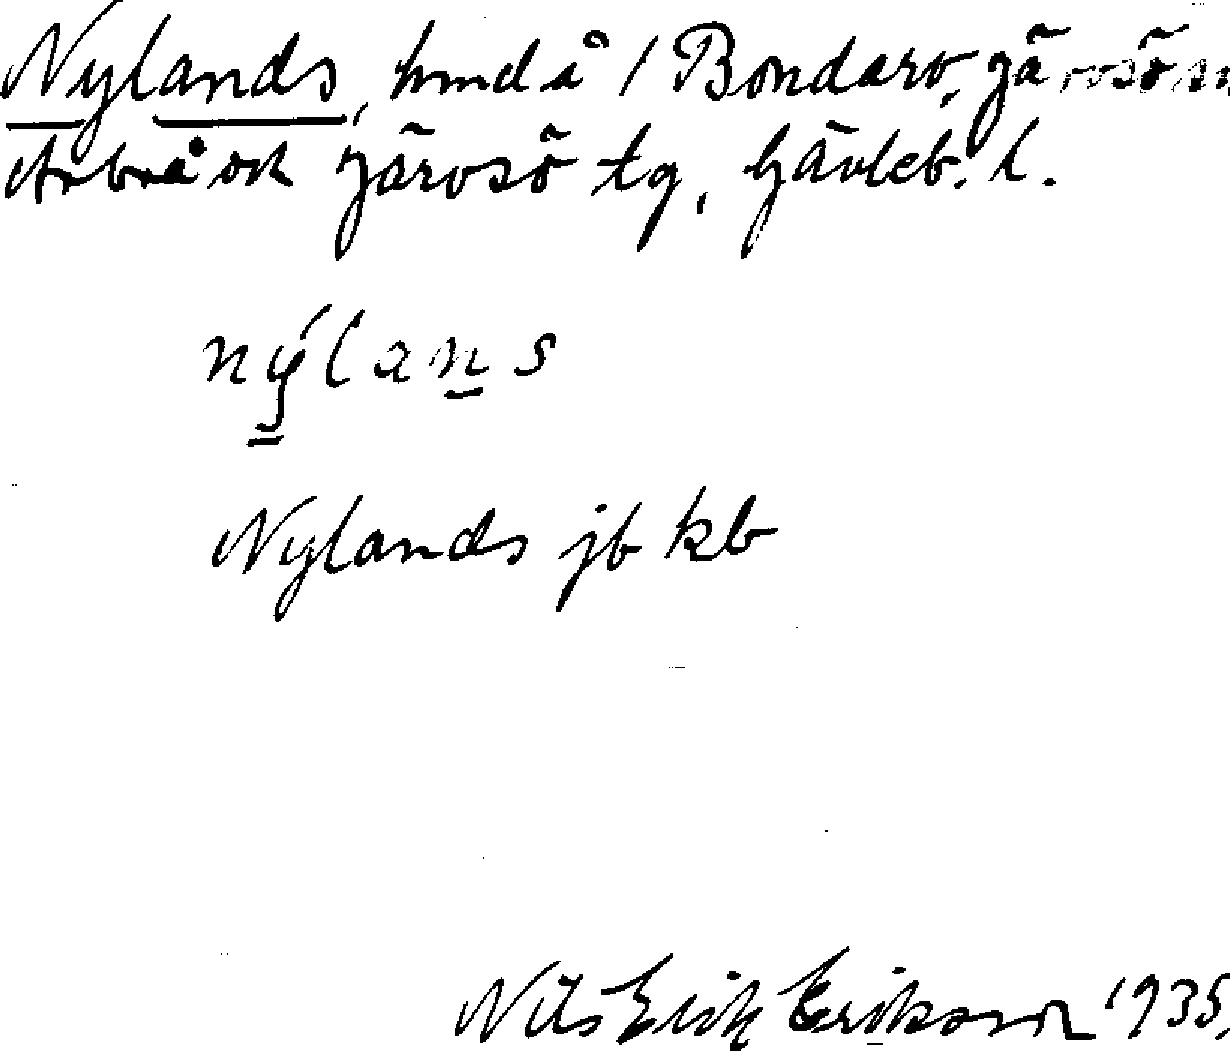 Nylands, hmd å 1 Bondarv, Järvsö sn
Arbrå och Järvsö tg, Gävleb. l.
nýlans
Nylands jb kb
Nils Erik Erikson 1935.